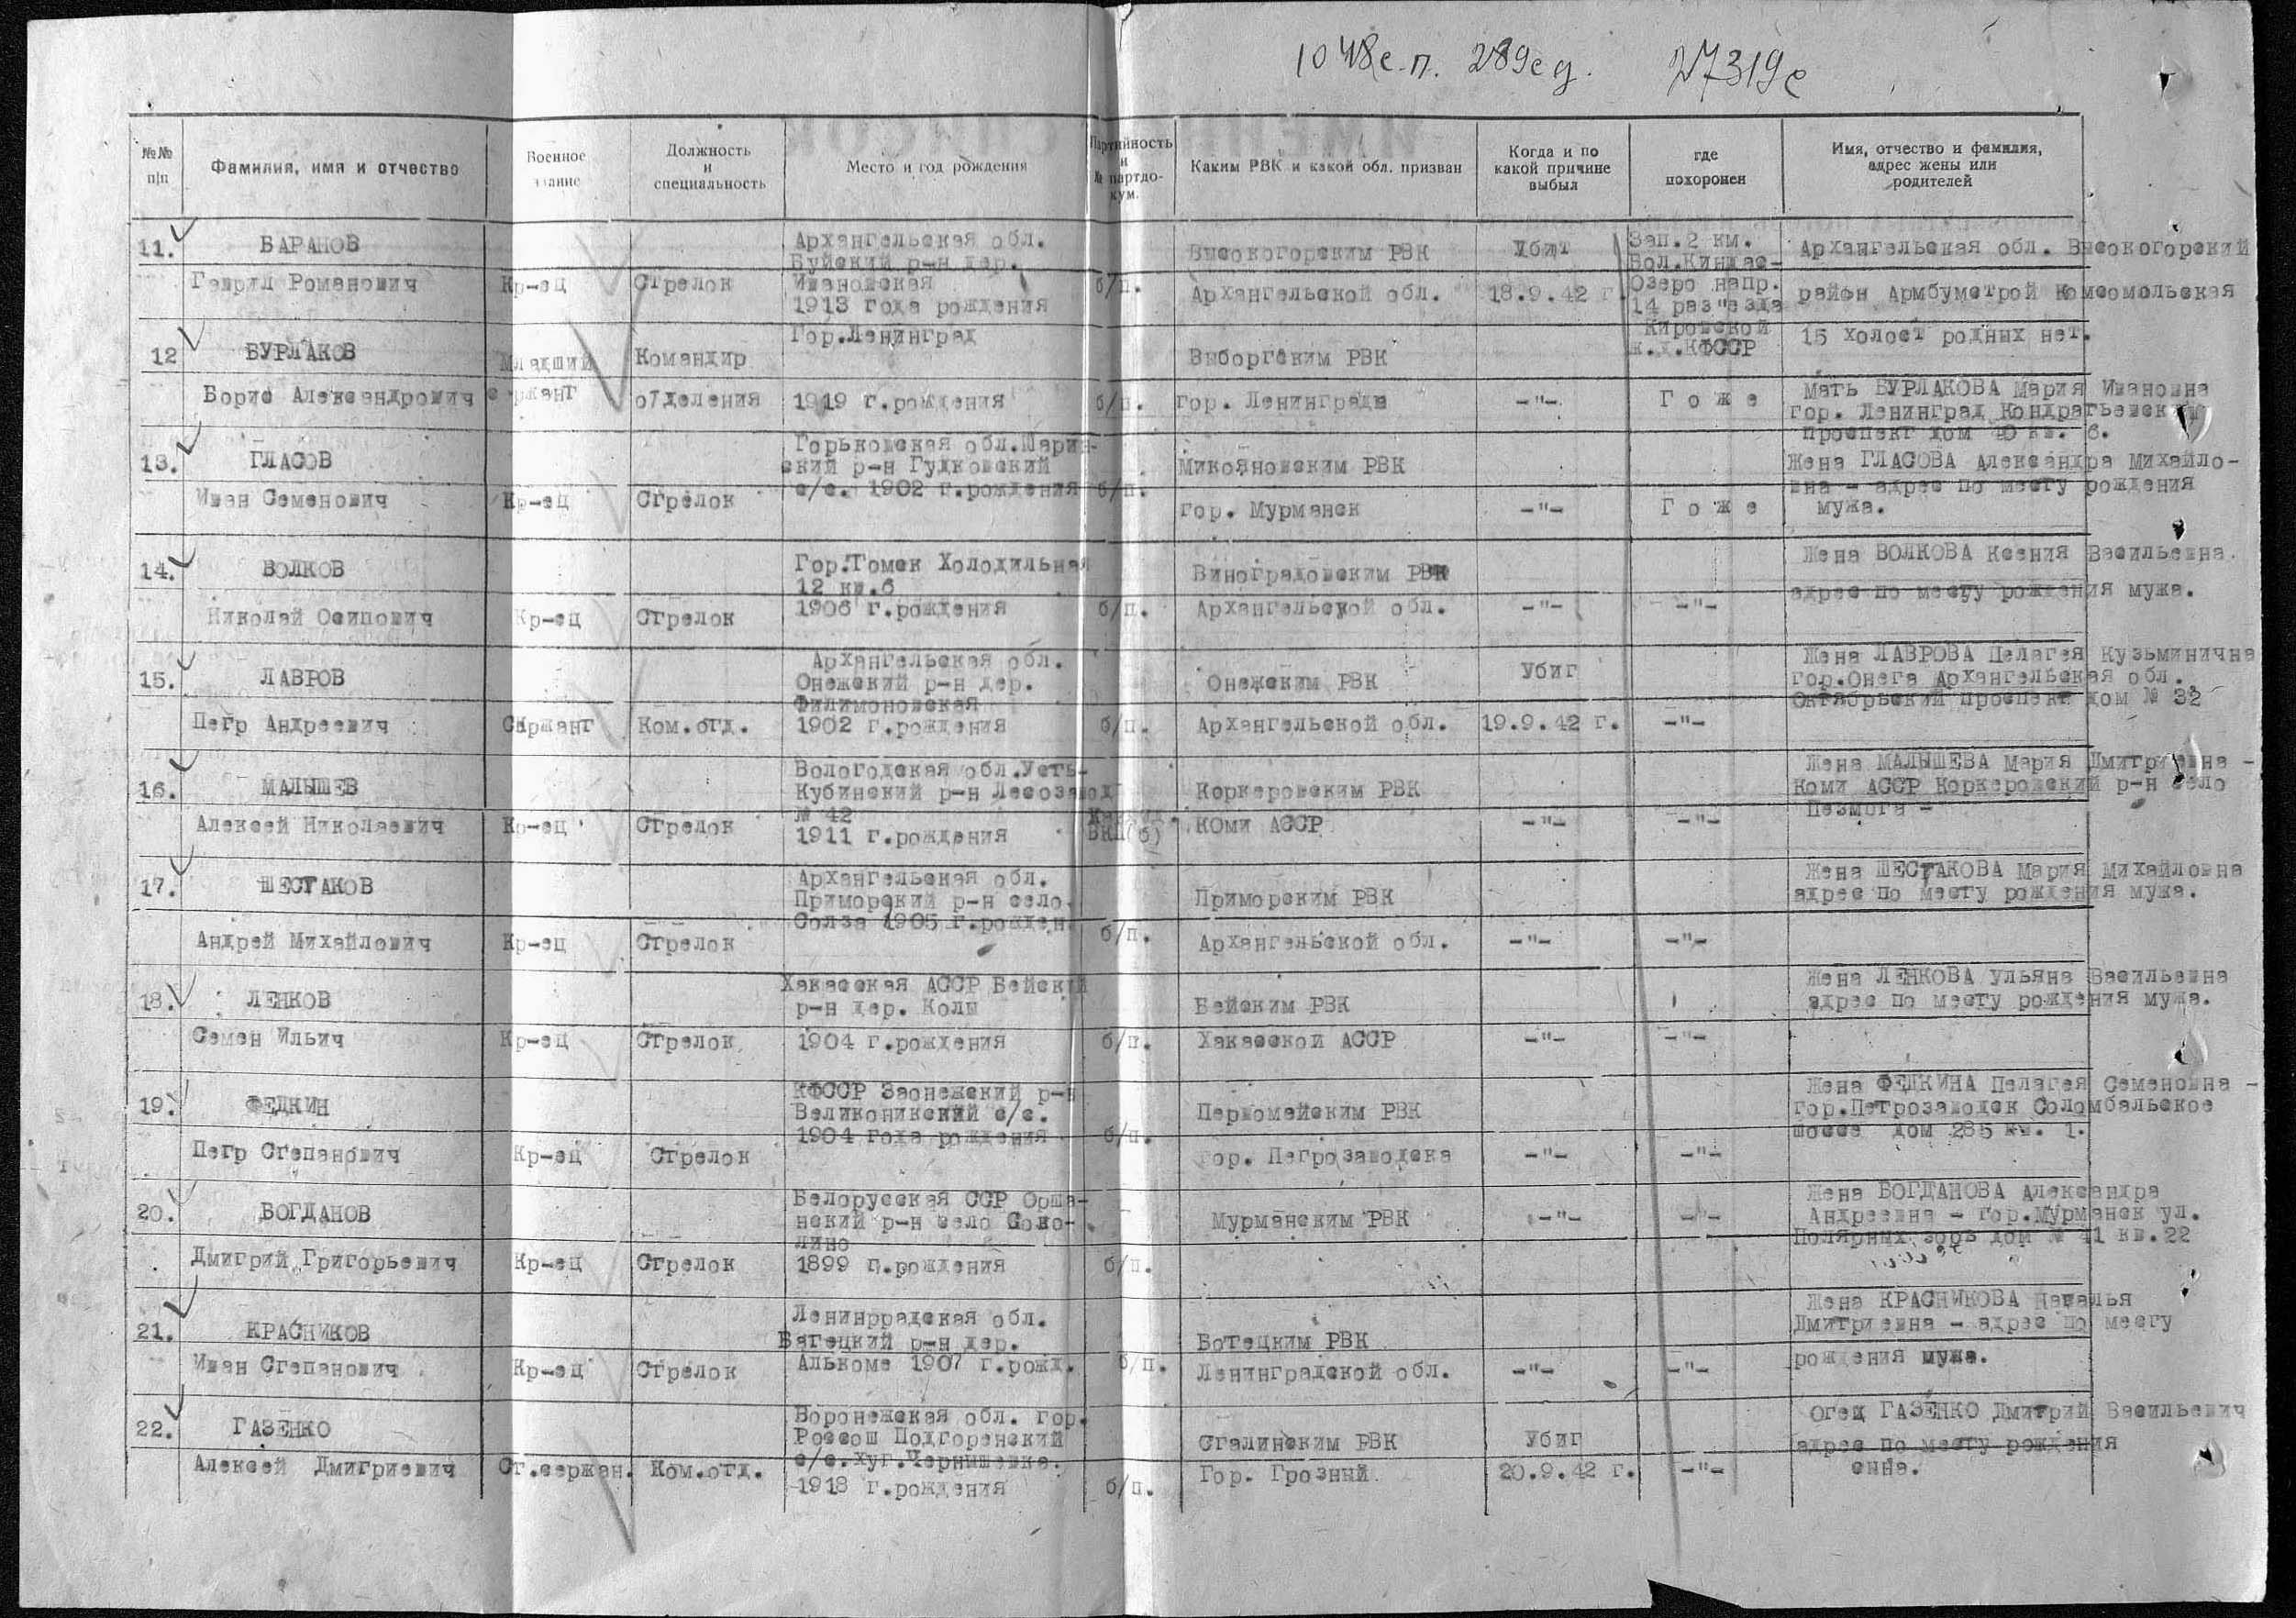 1048 с.п. 289 с д. 27319с
№№ п/п
Фамилия, имя и отчество
Военное звание
Должность и специальность
Место и год рождения
Партийность и № партдокум.
Каким РВК и какой обл. призван
Когда и по какой причине выбыл
где похоронен
Имя, отчество и фамилия, адрес жены или родителей
11.
БАРАНОВ
Гаврил Романович
Кр-ец
Стрелок
Архангельская обл.
Буйский р-н дер.
Ивановская
1913 года рождения
б/п.
Высокогорским РВК
Архангельской обл.
Убит
18.9.42 г.
Зап.2 км.
Вол.Киншас-
Озеро напр.
14 раз"езда
Кировской
ж.д.КФССР
Архангельская обл. Высокогорский
район Армбумстрой Комсомольская
15 холост родных нет.
12
БУРЛАКОВ
Борис Александрович
Младший
сержант
Командир
отделения
Гор.Ленинград
1919 г.рождения
б/п.
Выборгским РВК
гор. Ленинграда
-"-
Г о ж е
Мать БУРЛАКОВА Мария Ивановна
гор. Ленинград Кондратьевский
проспект дом 40 кв. 6.
13.
ГЛАСОВ
Иван Семенович
Кр-ец
Стрелок
Горьковская обл.Шарин-
ский р-н Гудковский
с/с. 1902 г.рождения
б/п.
Микояновским РВК
гор. Мурманск
-"-
Г о ж е
Жена ГЛАСОВА Александра Михайло-
вна - адрес по месту рождения
мужа.
14.
ВОЛКОВ
Николай Осипович
Кр-ец
Стрелок
Гор.Томск Холодильная
12 кв.6
1906 г.рождения
б/п.
Виноградовским РВК
Архангельской обл.
-"-
-"-
Жена ВОЛКОВА Ксения Васильевна.
адрес по месту рождения мужа.
15.
ЛАВРОВ
Петр Андреевич
Сержант
Ком.отд.
Архангельская обл.
Онежский р-н дер.
Филимоновская
1902 г.рождения
б/п.
Онежским РВК
Архангельской обл.
Убит
19.9.42 г.
-"-
Жена ЛАВРОВА Пелагея Кузьминична
гор.Онега Архангельская обл.
Октябрьский проспект дом № 32
16.
МАЛЫШЕВ
Алексей Николаевич
Кр-ец
Стрелок
Вологодская обл.Усть-
Кубинский р-н Лесозавод
№ 42
1911 г.рождения
ВКП(б)
Коркеровским РВК
КОми АССР
-"-
-"-
Жена МАЛЫШЕВА Мария Дмитриевна -
Коми АССР Коркеровский р-н село
Пезмога -
17.
ШЕСТАКОВ
Андрей Михайлович
Кр-ец
Стрелок
Архангельская обл.
Приморский р-н село
Солза 1905 г.рожден.
б/п.
Приморским РВК
Архангельской обл.
-"-
-"-
Жена ШЕСТАКОВА Мария Михайловна
адрес по месту рождения мужа.
18.
ЛЕНКОВ
Семен Ильич
Кр-ец
Стрелок
Хакасская АССР Бейский
р-н дер. Колы
1904 г.рождения
б/п.
Бейским РВК
Хакасской АССР
-"-
-"-
Жена ЛЕНКОВА Ульяна Васильевна
адрес по месту рождения мужа.
19.
ФЕДКИН
Петр Степанович
Кр-ец
Стрелок
КФССР Заонежский р-н
Великоникский с/с.
1904 года рождения
б/п.
Первомайским РВК
гор. Петрозаводска
-"-
-"-
Жена ФЕДКИНА Пелагея Семеновна -
гор.Петрозаводск Соломбальское
шоссе дом 285 кв. 1.
20.
БОГДАНОВ
Дмитрий Григорьевич
Кр-ец
Стрелок
Белорусская ССР Орша-
нский р-н село Соко-
лино
1899 г.рождения
б/п.
Мурманским РВК
-"-
-"-
Жена БОГДАНОВА Александра
Андреевна - гор.Мурманск ул.
Полярных зорь дом № 41 кв.22
21.
КРАСНИКОВ
Иван Степанович
Кр-ец
Стрелок
Ленинррадская обл.
Батецкий р-н дер.
Алькоме 1907 г.рожд.
б/п.
Ботецким РВК
Ленинградской обл.
-"-
-"-
Жена КРАСНИКОВА Наталья
Дмитриевна - адрес по месту
рождения мужа.
22.
ГАЗЕНКО
Алексей Дмитриевич
Ст.сержан.
Ком.отд.
Воронежская обл. гор.
Россош Подгоренский
с/с.хут.Чернышевка.
1918 г.рождения
б/п.
Сталинским РВК
Гор. Грозный
Убит
20.9.42 г.
-"-
Отец ГАЗЕНКО Дмитрий Васильевич
адрес по месту рождения
сына.